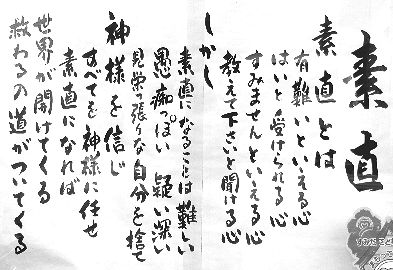 素直
素直とは
有難いといえる心
はいと受けられる心
すみませんといえる心
教えて下さいと聞ける心
しかし
素直になることは難しい
愚痴っぽい 疑い深い
見栄っ張りな自分を捨て
神様を信じ
すべてを神様に任せ
素直になれば
世界が開けてくる
救わるの道がついてくる